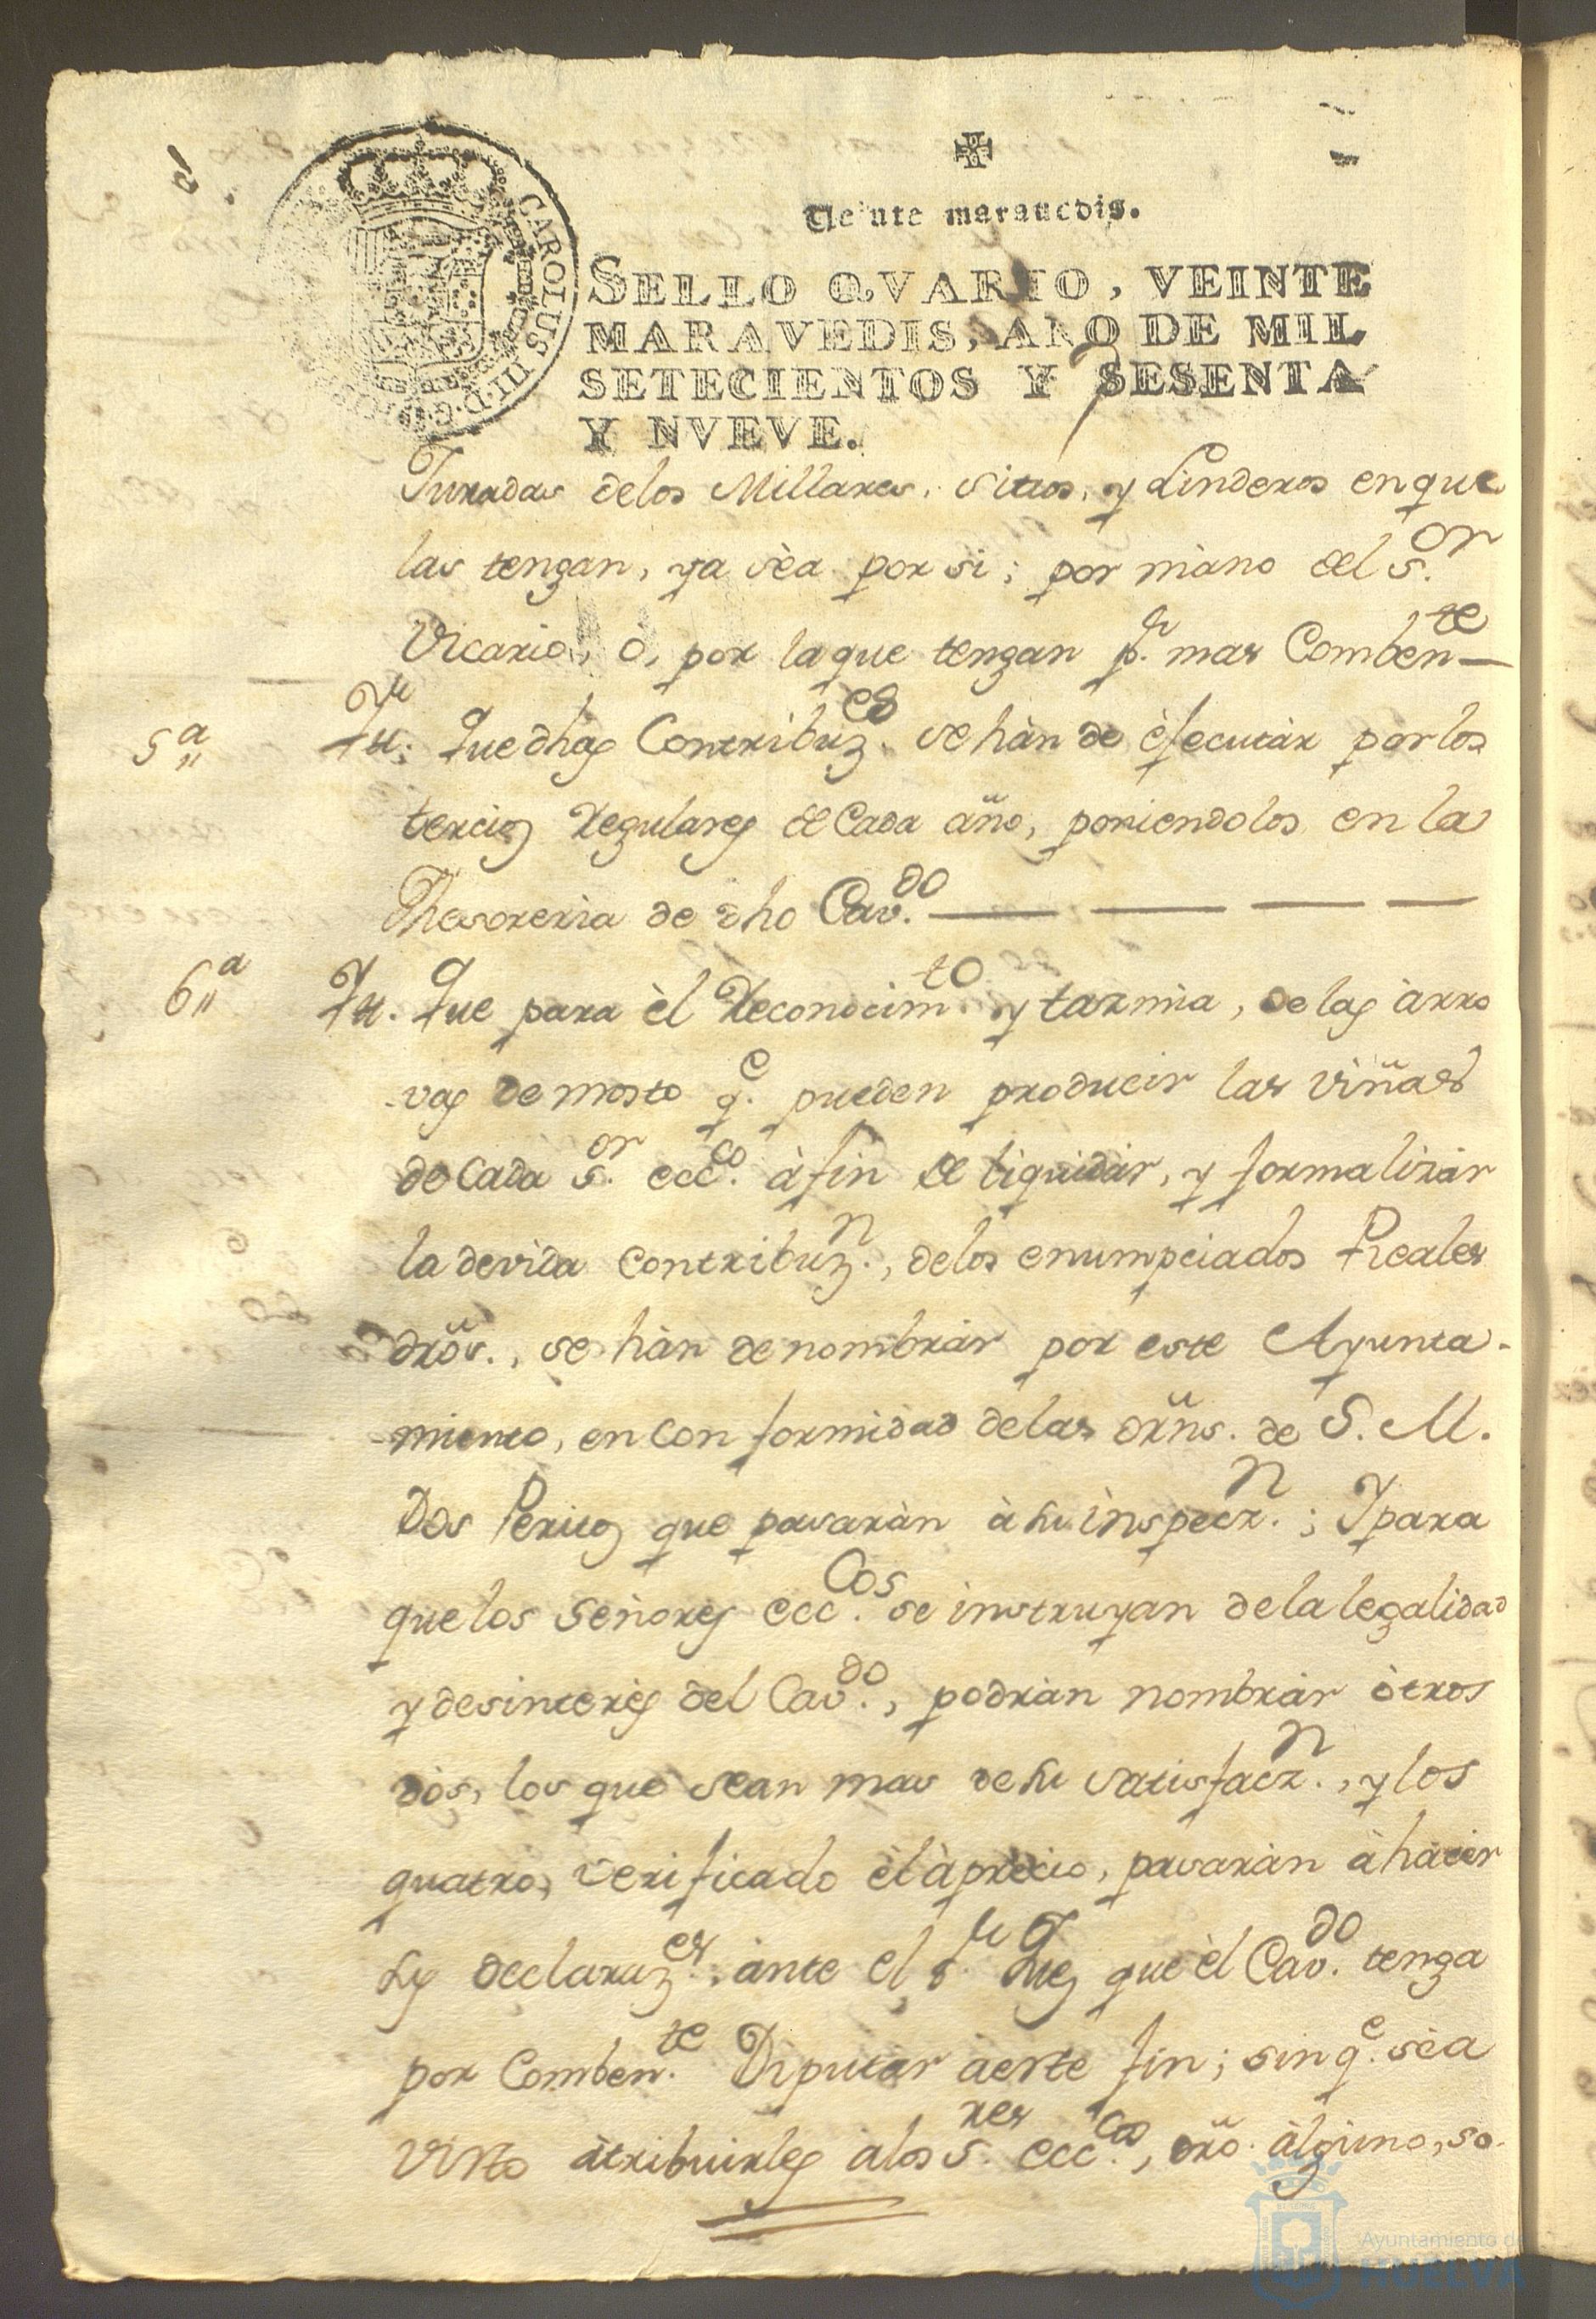 Veinte maravedis.
CAROLUS III D. G.
SELLO QVARTO, VEINTE
MARAVEDIS, AÑO DE MIL
SETECIENTOS Y SESENTA
Y NVEVE.
Juradas delos Millares, sitios, y Linderos en que
las tengan, ya sèa por si; por màno del s.or
Vicario, ò, por la que tengan p.r mas Comben.te
5,,a Yt. Que dhas Contribuz.es se hàn de èjecutàr por los
tercios Regulares de Cada año, poniendolos en la
Thesoreria de dho Cav.do
6,,a Yt. Que para èl Reconocim.to y tazmia, de las àrro
-vas de mosto q.e pueden producir las viñas
de Cada s.or ecc.co à fin de liquidàr, y formalizàr
la devida contribuz.n, delos enumpciados Reales
dros., se hàn de nombràr por este Ayunta-
-miento, en conformidad delas ôrns. de S. M.
Dos Peritos que pasaràn à su ìnspecz.n; Y para
que los Señores ecc.cos se instruyan de la legalidad
y desinterès del Cav.do, podràn nombràr òtros
dos, los que sean mas de su satisfacz.n, y los
quatro, verificado èl àprecio, pasaràn à hàcer
sus declaraz.es ànte el s.r Juez que èl Cav.do tenga
por Comben.te Diputàr àeste fin; sin q.e sèa
visto àtribuirles àlos s.res ecc.cos, dro. àlguno, so-
Ayuntamiento de
HUELVA